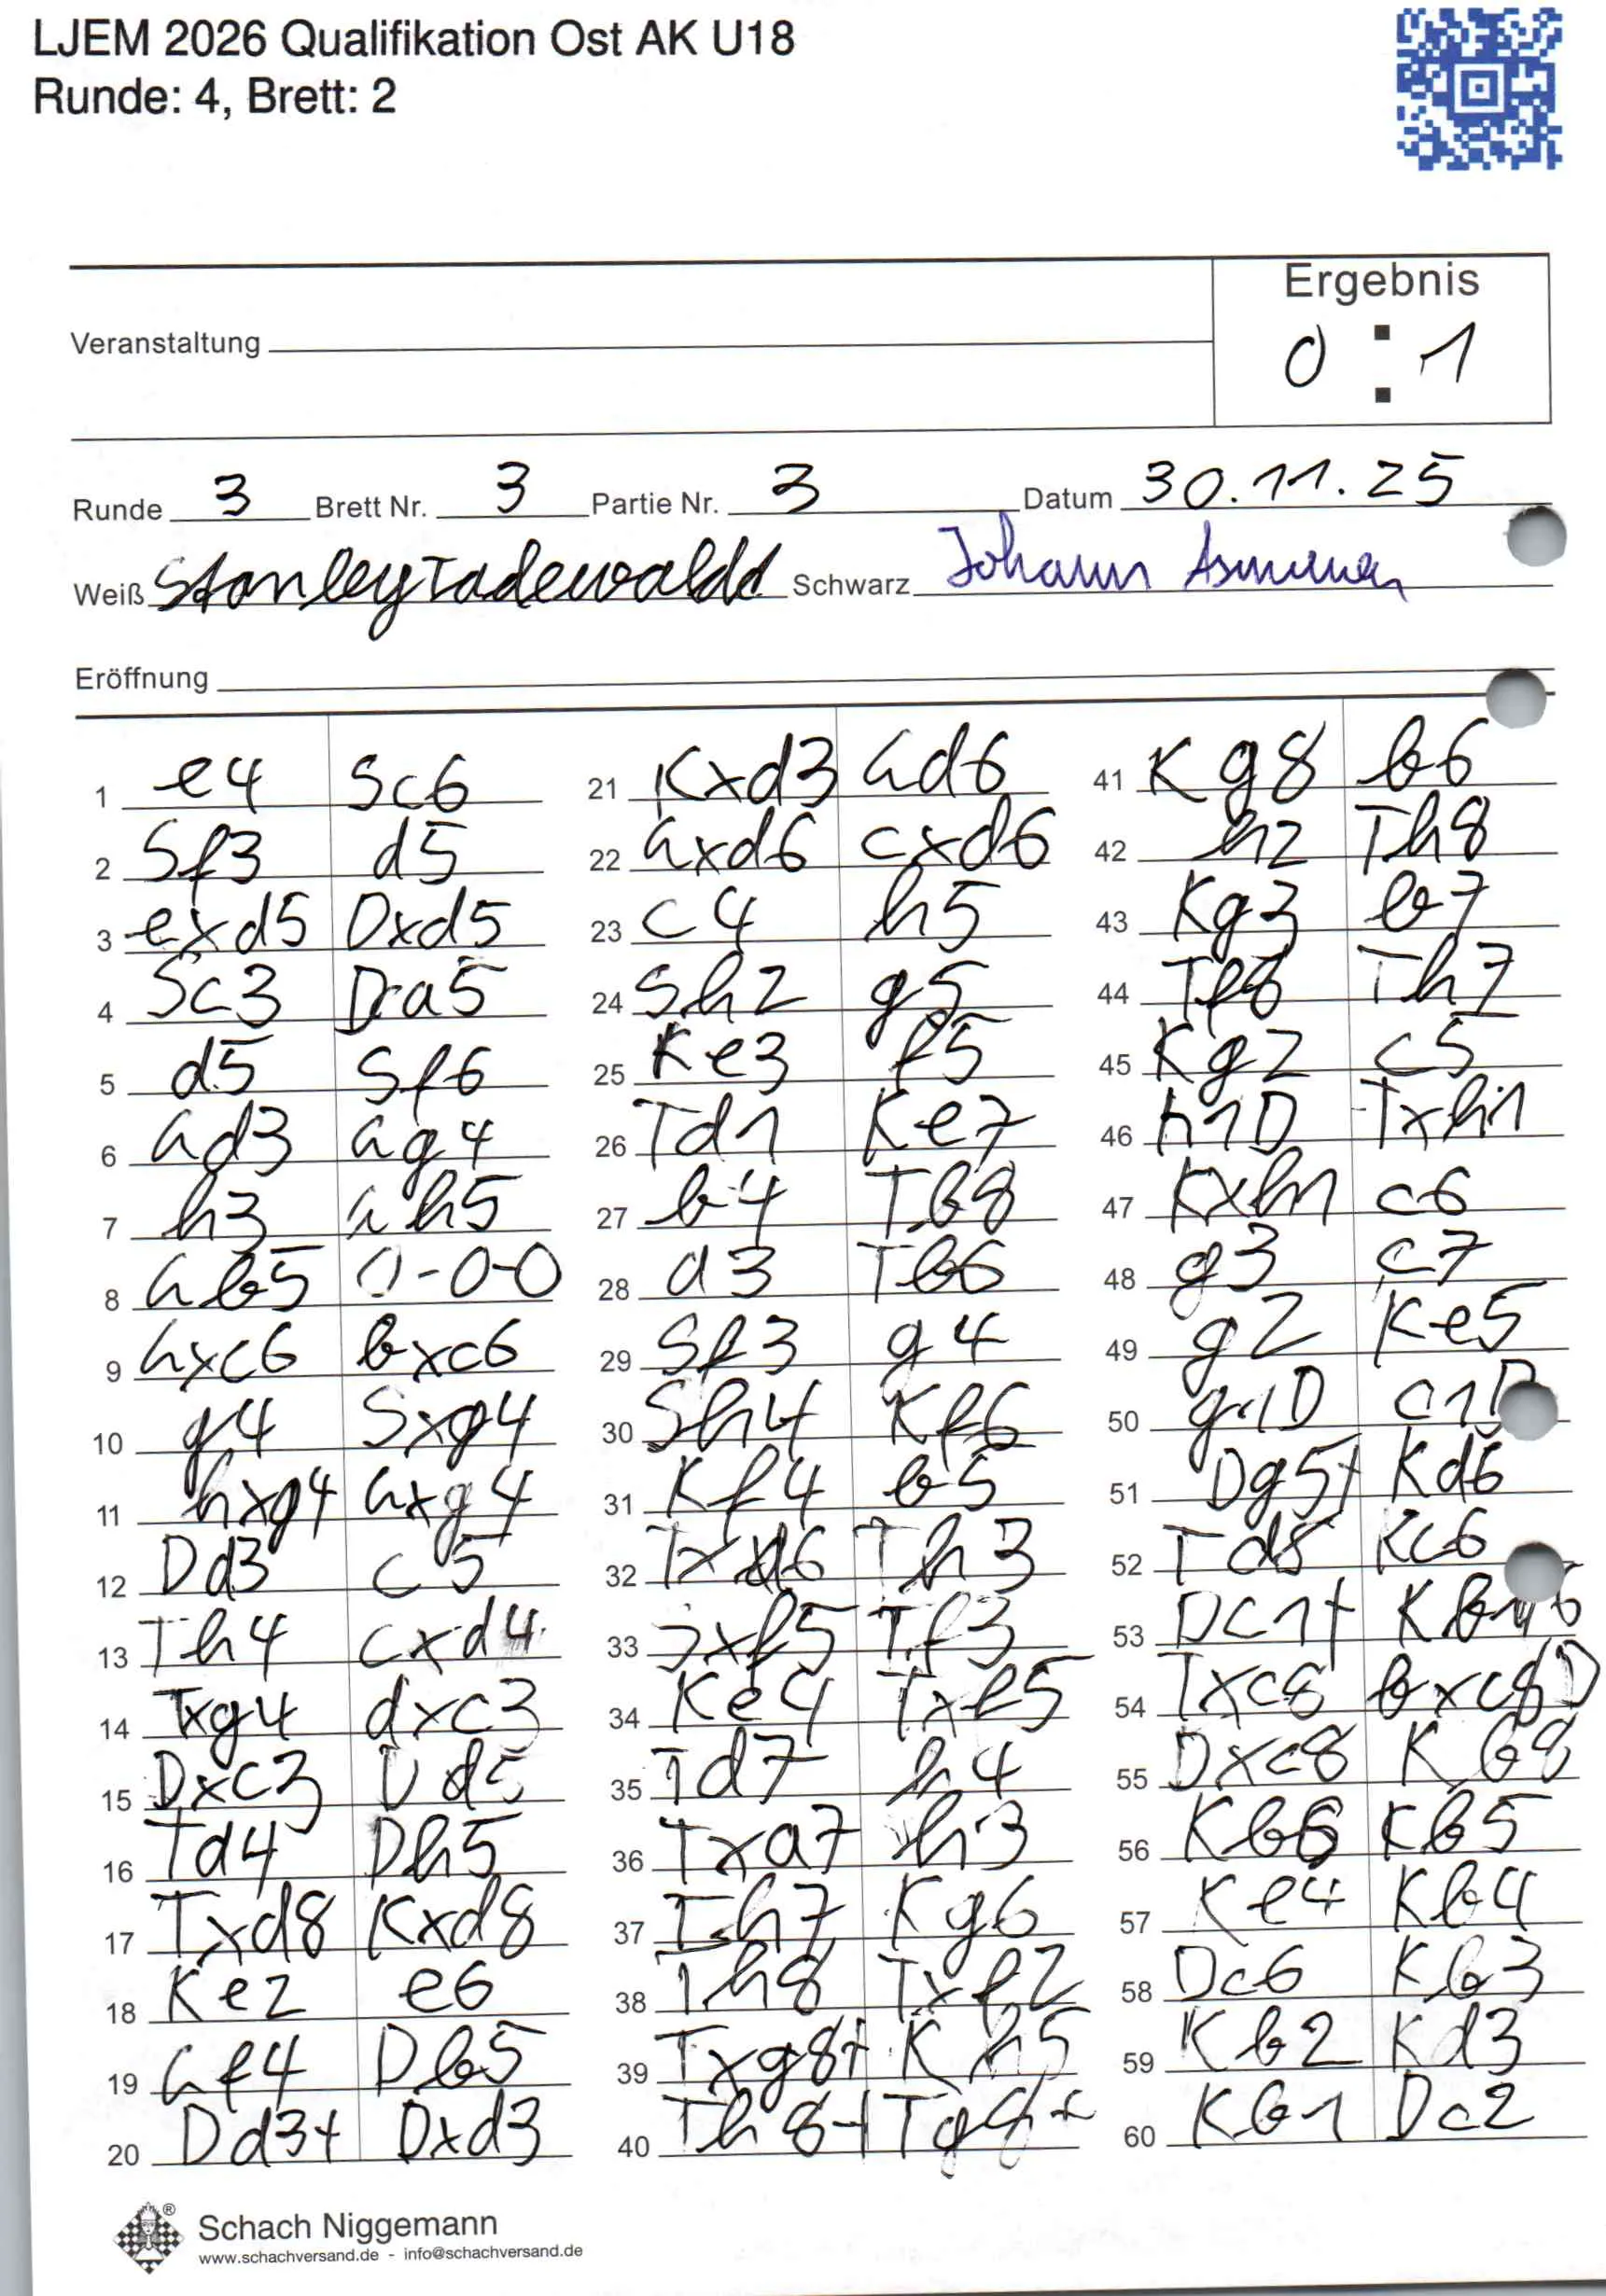 LJEM 2026 Qualifikation Ost AK U18
Runde: 4, Brett: 2
Ergebnis
0 : 1
Veranstaltung
Runde 3 Brett Nr. 3 Partie Nr. 3 Datum 30.11.25
Weiß Stanley Tadewaldd Schwarz Johann
Eröffnung
1 e4 Sc6
2 Sf3 d5
3 exd5 Dxd5
4 Sc3 Da5
5 d5 Sf6
6 Ld3 Lg4
7 h3 Lh5
8 Lb5 0-0-0
9 Lxc6 bxc6
10 g4 Sxg4
11 hxg4 Lxg4
12 Dd3 c5
13 Th4 cxd4
14 Txg4 dxc3
15 Dxc3 Dd5
16 Td4 Dh5
17 Txd8 Kxd8
18 Ke2 e6
19 Lf4 Db5
20 Dd3+ Dxd3
21 Kxd3 Ld6
22 Lxd6 cxd6
23 c4 h5
24 Sh2 g5
25 Ke3 f5
26 Td1 Ke7
27 b4 Tb8
28 a3 Tb6
29 Sf3 g4
30 Sh4 Kf6
31 Kf4 b5
32 Txd6 Th3
33 Sxf5 Tf3
34 Ke4 Txf5
35 Td7 h4
36 Txa7 h3
37 Th7 Kg6
38 Th8 Txf2
39 Txg8+ Kh5
40 Th8+ Tg8+
41 Kg8 b6
42 h2 Th8
43 Kg3 b7
44 Tf8 Th7
45 Kg2 c5
46 h1D Txh1
47 Kxh1 c6
48 g3 c7
49 g2 Ke5
50 g1D c1D
51 Dg5+ Kd6
52 Td8 Kc6
53 Dc1+ Kb6
54 Txc8 bxc8D
55 Dxc8 Kb8
56 Kb6 Kb5
57 Ke4 Kb4
58 Dc6 Kb3
59 Kb2 Kd3
60 Kb1 Dc2
Schach Niggemann
www.schachversand.de - info@schachversand.de